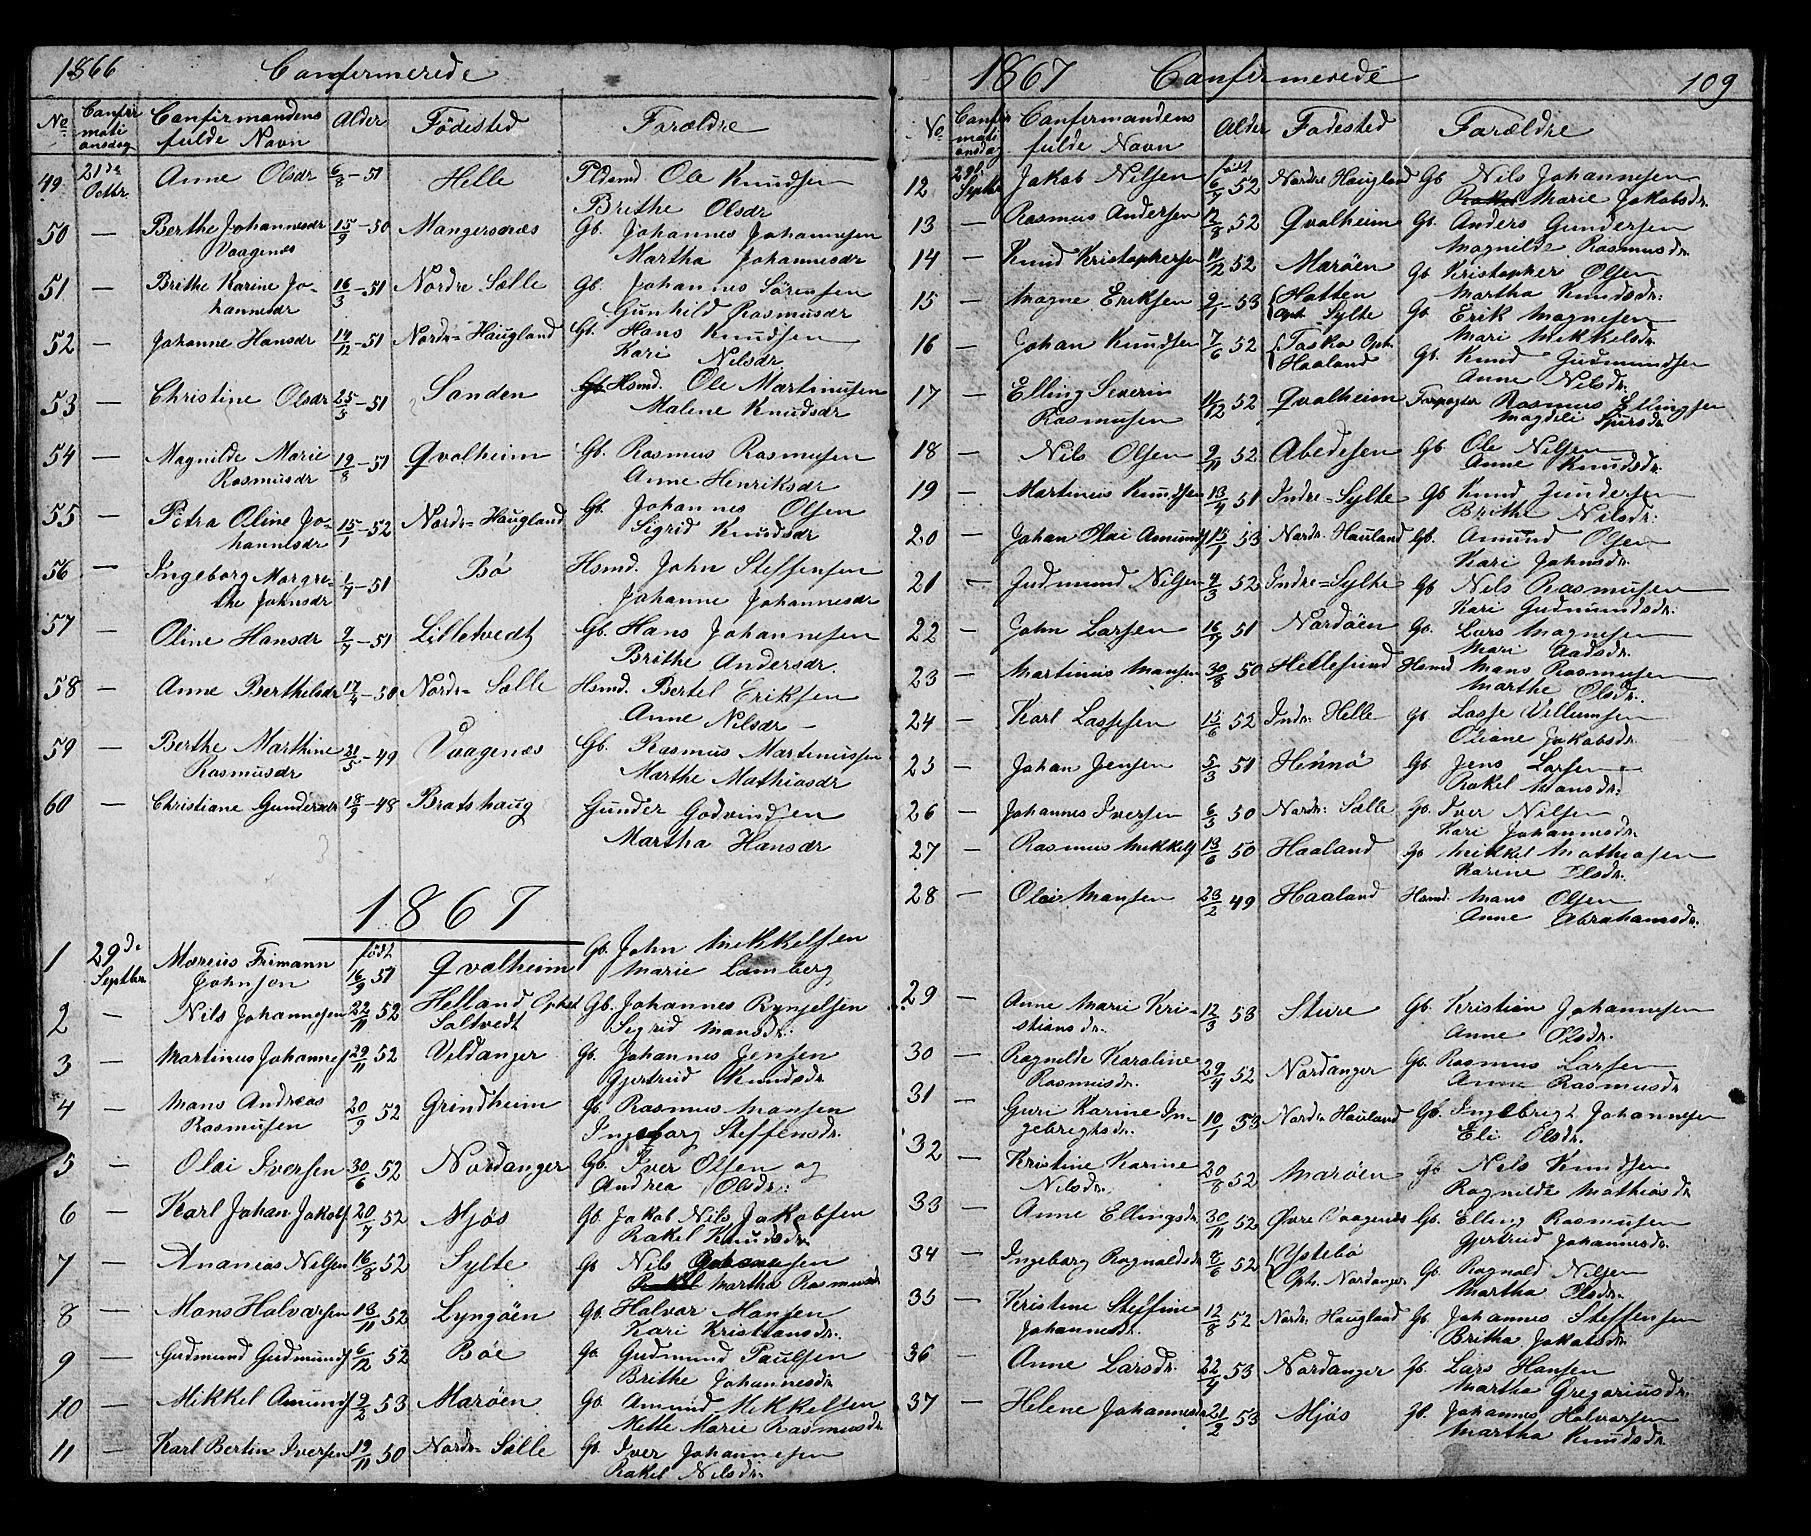 1866 Canfirmerede
No Canfirmationsdag Canfirmandens fulde Navn Alder Fødested Forældre
49 21de Octbr Anne Olsdr 6/8-51 Helle Pldsmd. Ole Knudsen
Brithe Olsdr
50 — Berthe Johannesdr 15/9-50 Mangersnæs Gb. Johannes Johannesen
Vaagenæs Martha Johannesdr
51 — Brithe Karine Jo- 16/3-51 Nordre Sælle Gb. Johannes Sørensen
hannesdr Gunhild Rasmusdr
52 — Johanne Hansdr 14/12-51 Nordr= Haugland Gb. Hans Knudsen
Kari Nilsdr
53 — Christine Olsdr 25/5-51 Sanden Hsmd. Ole Martinusen
Malene Knudsdr
54 — Magnilde Marie 19/8-51 Qvalheim Gb. Rasmus Rasmusen
Rasmusdr Anne Henriksdr
55 — Petra Oline Jo- 15/1-52 Nordr= Haugland Gb. Johannes Olsen
hannesdr Sigrid Knudsdr
56 — Ingeborg Margre- 1/7-51 Bö Hsmd. John Steffensen
the Johnsdr Johanne Johannesdr
57 — Oline Hansdr 9/7-51 Lilletvedt Gb. Hans Johannesen
Brithe Andersdr.
58 — Anne Berthilsdr 17/4-50 Nordr= Sælle Hsmd. Bertel Eriksen
Anne Nilsdr —
59 — Berthe Marthine 21/5-49 Vaagenæs Gb. Rasmus Martinussen
Rasmusdr Marthe Mathiasdr
60 — Christiane Gundersdr 18/9-48 Bratshaug Gunder Godvindsen
Martha Hansdr
1867
1 29de Septbr Marcus Frimann født 16/9 51 Qvalheim Gb. John Mikkelsen
Johnsen Marie Lamberg
2 — Nils Johannesen 22/11 52 Helland Opht Gb. Johannes Rynjelsen
Saltvedt Sigrid Mansdr.
3 — Martinus Johannes 29/11 52 Veldanger Gb. Johannes Jensen
Gjertrud Knudsdr
4 — Mans Andreas 20/9 52 Grindheim Gb. Rasmus Mansen
Rasmusen Ingeborg Steffensdr.
5 — Olai Iversen 30/6 52 Nordanger Gb. Iver Olsen og
Andrea Olsdr.
6 — Karl Johan Jakobs 20/7 52 Mjøs Gb. Jakob Nils Jakobsen
Rakel Knudsdr.
7 — Ananias Nilsen 16/8 52 Sylte Gb Nils
Martha Rasmusdr
8 — Mans Halvorsen 13/11 52 Lyngøen Gb. Halvor Mansen
Kari Kristiansdr.
9 — Gudmund Gudmunds 6/12 52 Bøe Gb. Gudmund Paulsen
Brithe Johannesdr
10 — Mikkel Amunds 9/2 53 Marøen Gb. Amund Mikkelsen
Mette Marie Rasmusdr
11 — Karl Bertin Iversen 19/11 50 Nordr= Sælle Gb. Iver Johannesen
Rakel Nilsdr.
1867 Canfirmerede 109
No Canfirmationsdag Canfirmandens fulde Navn Alder Fødested Forældre
12 29de Septbr Jakob Nilsen født 6/9 52 Nordre Haugland Gb Nils Johannesen
Rakel Marie Jakobsdr.
13 — Rasmus Andersen 12/8 52 Qvalheim Gb. Anders Gundersen
Magnilde Rasmusdr.
14 — Knud Kristophersen 11/12 52 Marøen Gb Kristopher Olsen
Martha Knudsdr.
15 — Magne Eriksen 9/1 53 Hatten Gb. Erik Magnesen
Oph Sylte Mari Mikkelsdr
16 — Johan Knudsen 7/6 52 Toska Oph. Gb. Knud Gudmundsen
Haaland Anne Nilsdr.
17 — Elling Severin 11/12 52 Qvalheim Forpagter Rasmus Ellingsen
Rasmusen Magdeli Sjursdr
18 — Nils Olsen 9/11 52 Abedesen Gb Ole Nilsen
Anne Knudsdr.
19 — Martinus Knudsen 13/4 51 Indre=Sylte Gb Knud Gundersen
Brithe Nilsdr.
20 — Johan Olai Amunds 15/1 53 Nordr. Hauland Gb. Amund Olsen
Kari Johnsdr.
21 — Gudmund Nilsen 4/3 52 Indre=Sylte Gb Nils Rasmusen
Kari Gudmundsdr.
22 — John Larsen 16/9 51 Nordøen Gb. Lars Magnesen
Mari Aadsdr.
23 — Martinus Mansen 30/8 50 Hellesund Hsmd Mans Rasmusen
Marthe Olsdr.
24 — Karl Lassesen 15/6 52 Indr. Helle Gb. Lasse Villumsen
Oliane Jakobsdr.
25 — Johan Jensen 5/3 51 Hennø Gb Jens Larsen
Rakel Mansdr.
26 — Johannes Iversen 6/3 50 Nordr: Sælle Gb. Iver Nilsen
Kari Johannesdr.
27 — Rasmus Mikkels 13/6 50 Haaland Gb Mikkel Mathiasen
Karine Olsdr.
28 — Olai Mansen 23/2 49 Haaland Hsmd. Mans Olsen
Anne Abrahamsdr.
29 — Anne Marie Kri- 12/3 53 Sture Gb. Kristian Johannesen
stiansdr. Anne Olsdr.
30 — Ragnilde Karoline 29/4 52 Nordanger Gb. Rasmus Larsen
Rasmusdr. Anne Rasmusdr
31 — Guri Karine In- 10/1 53 Nordr. Hauland Gb. Ingebrigt Johannesen
gebrigtsdr. Eli Olsdr.
32 — Kristine Karine 20/8 52 Marøen Gb Nils Knudsen
Nilsdr. Ragnilde Mathiasdr
33 — Anne Ellingsdr. 30/11 52 Øvre Vaagenes Gb. Elling Rasmusen
Gjertrud Johannesdr.
34 — Ingeborg Ragnaldsdr 8/6 52 Ystebø Gb. Ragnald Nilsen
Oph. Nordanger Martha Olsdr.
35 — Kristine Steffine 12/8 52 Nordr. Haugland Gb. Johannes Steffensen
Johannesdr. Britha Jakobsdr.
36 — Anne Larsdr. 22/4 53 Nordanger Gb. Lars Hansen
Martha Gregoriusdr.
37 — Helene Johannesdr 21/2 53 Mjøs Gb. Johannes Halvorsen
Martha Knudsdr.